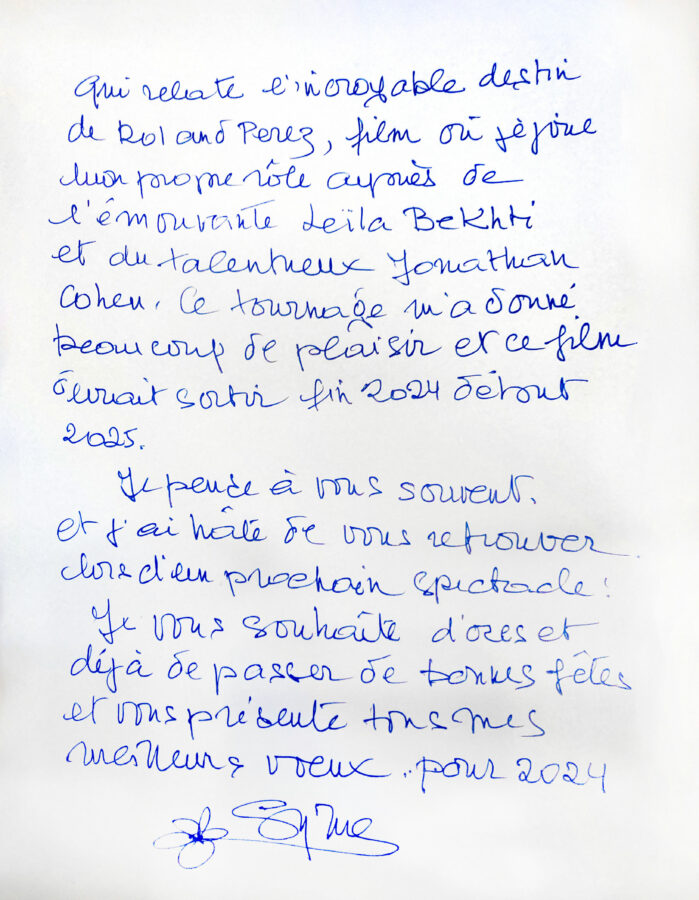 Qui relate l'incroyable destin
de Roland Perez, film où je joue
mon propre rôle auprès de
l'émouvante Leïla Bekhti
et du talentueux Jonathan
Cohen. Ce tournage m'a donné
beaucoup de plaisir et ce film
devrait sortir fin 2024 début
2025.
Je pense à vous souvent.
et j'ai hâte de vous retrouver
lors d'un prochain spectacle !
Je vous souhaite d'ores et
déjà de passer de bonnes fêtes
et vous présente tous mes
meilleurs voeux pour 2024
Sylvie